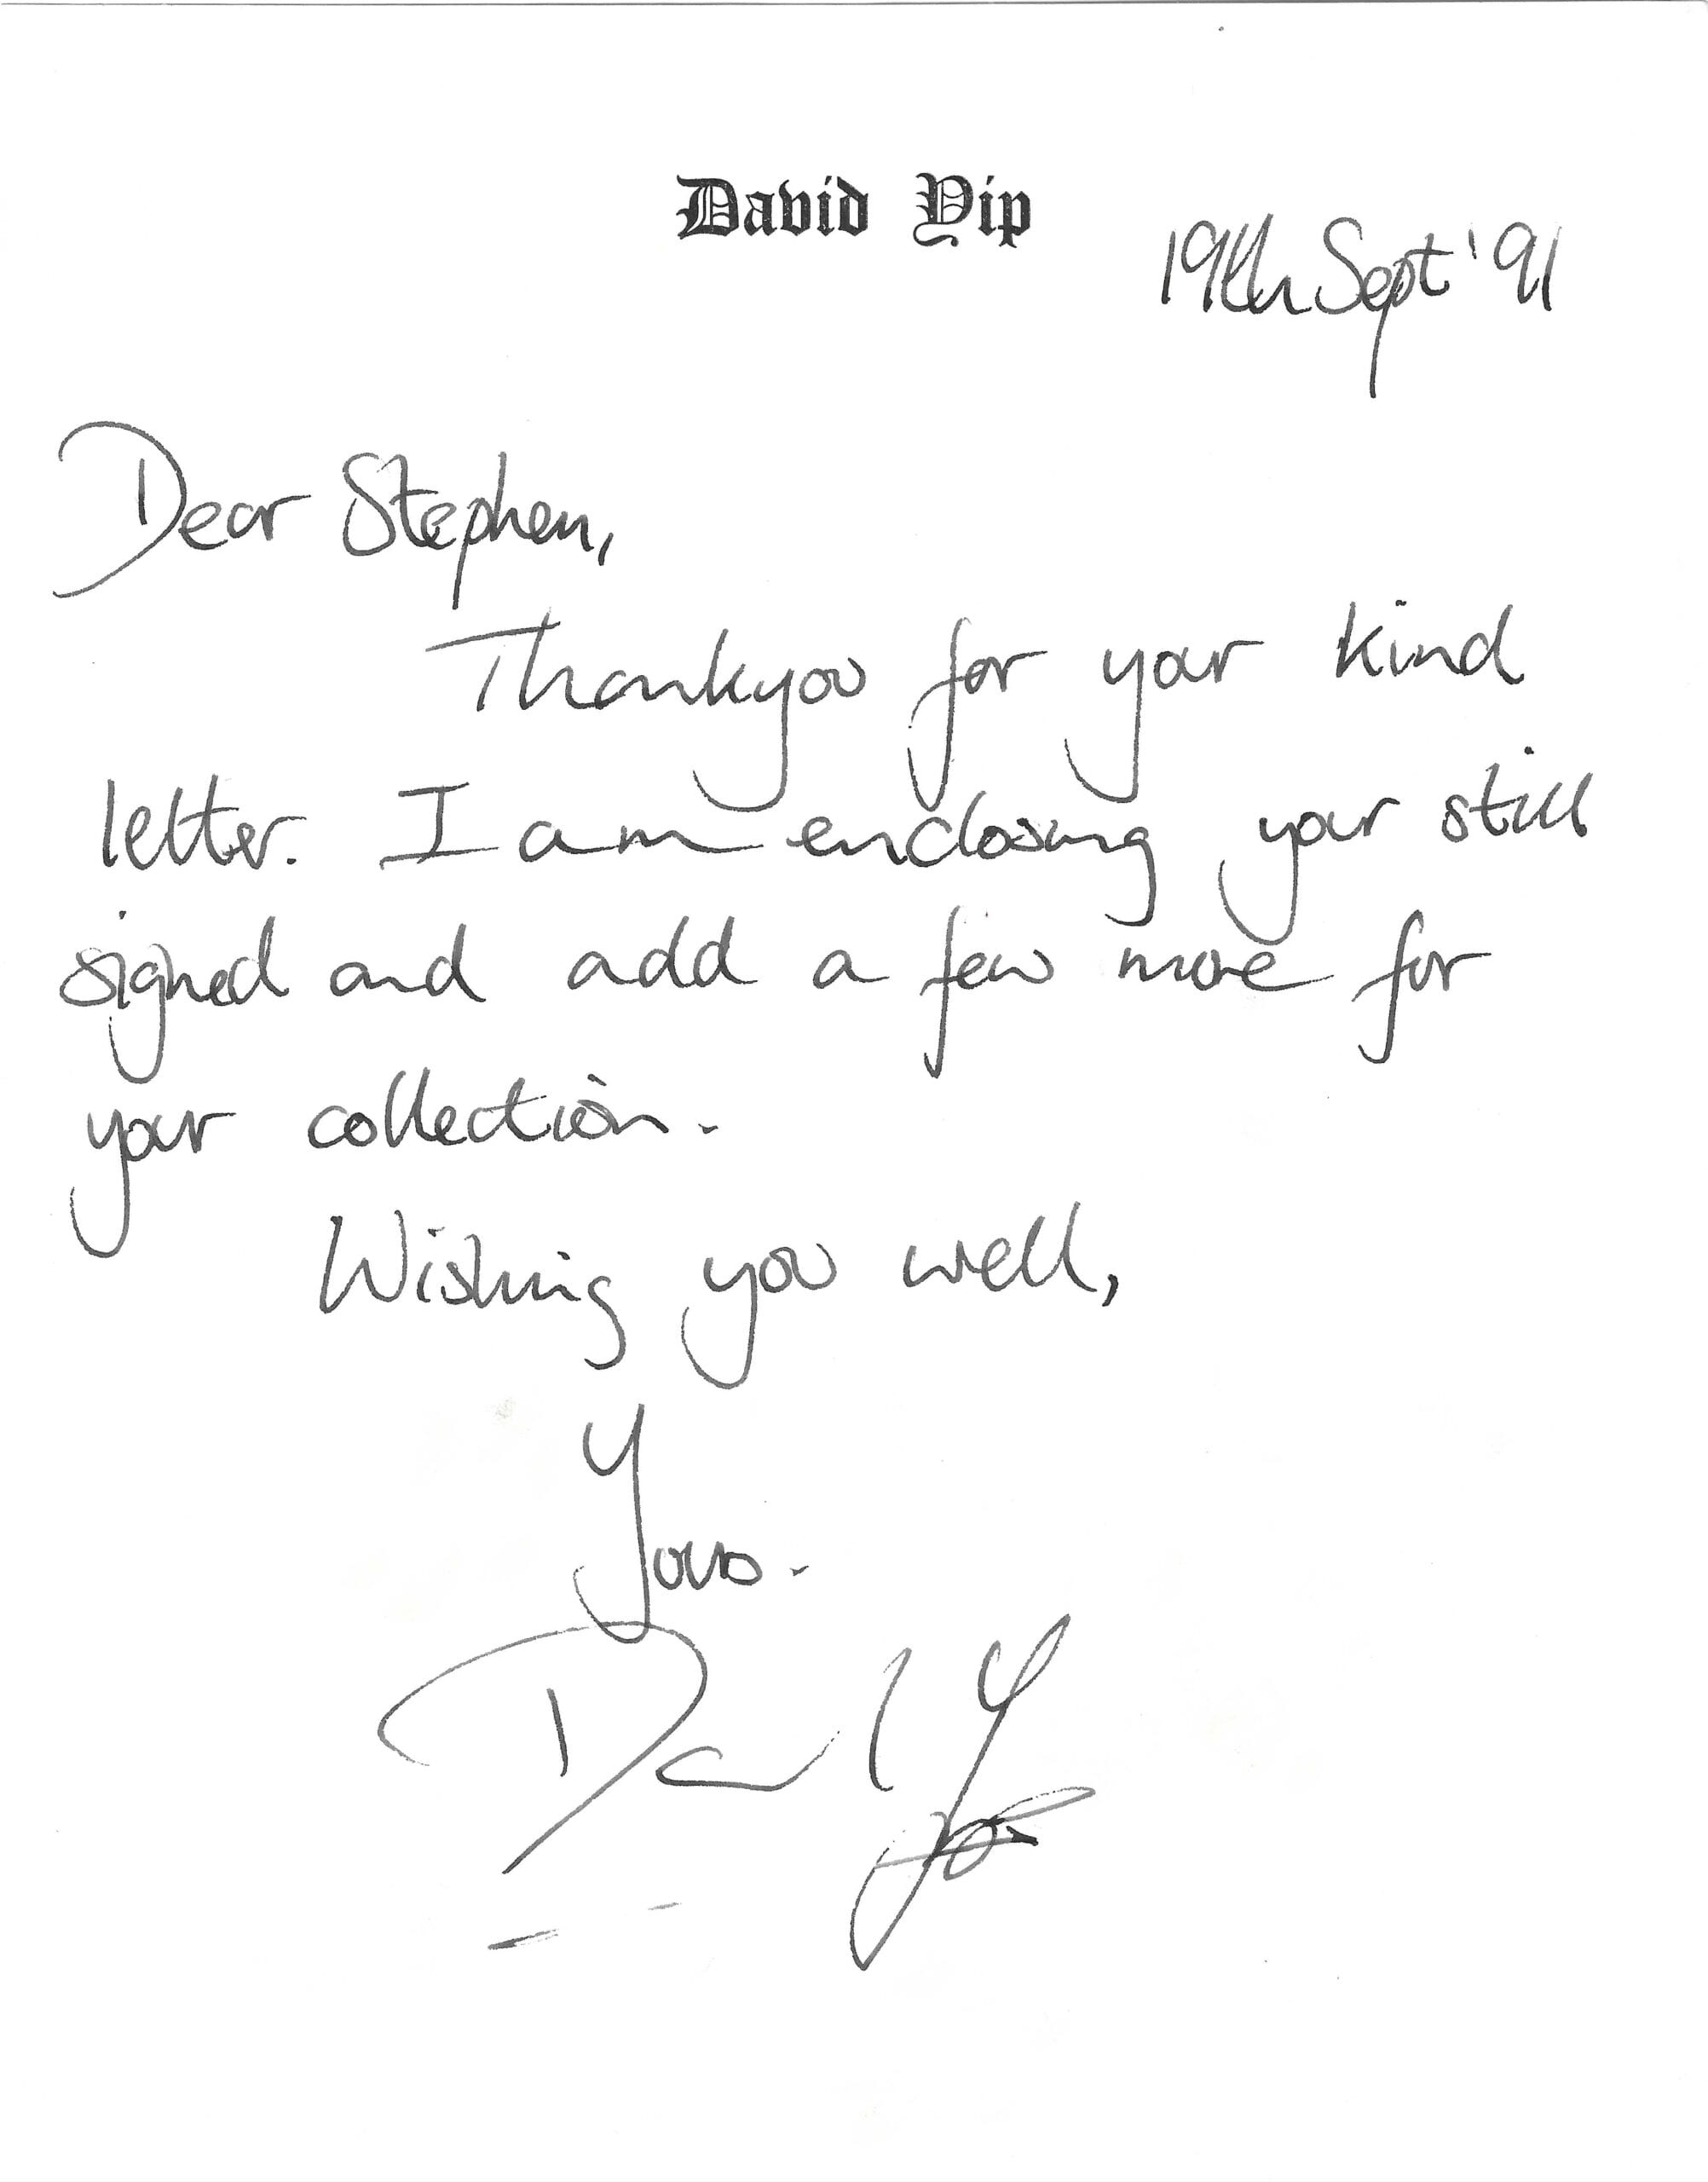 David Yip
19th Sept '91
Dear Stephen,
Thankyou for your kind
letter. I am enclosing your still
signed and add a few more for
your collection.
Wishing you well,
Yours.
David Yip